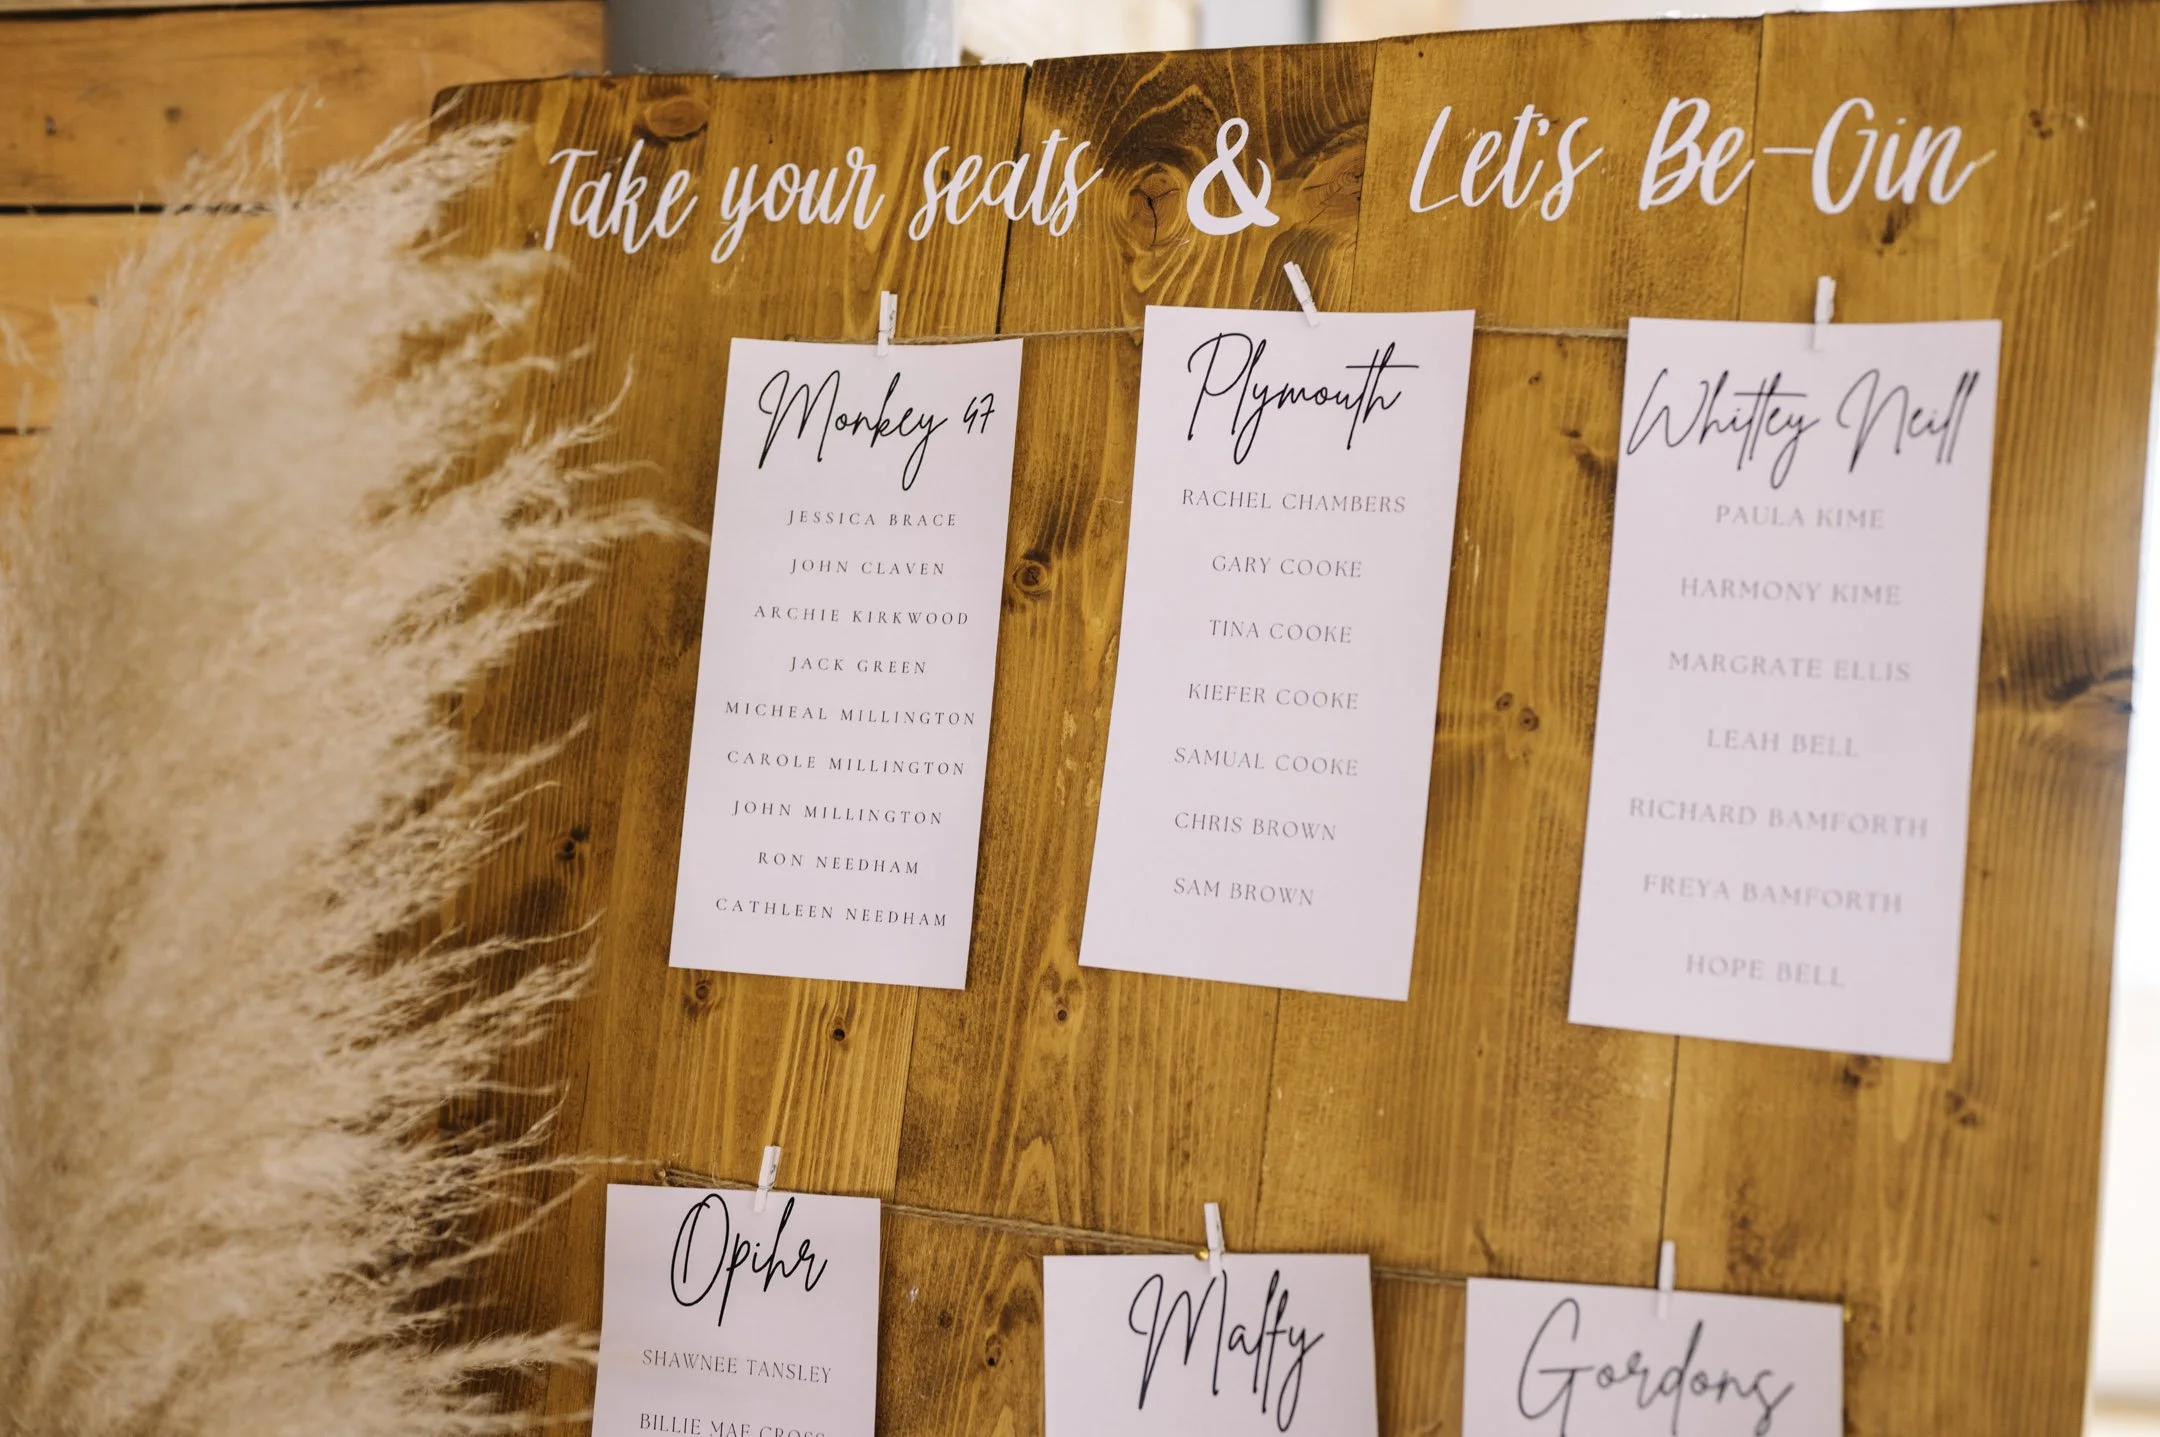 Take your seats & Let's Be-Gin
Monkey 47
JESSICA BRACE
JOHN CLAVEN
ARCHIE KIRKWOOD
JACK GREEN
MICHEAL MILLINGTON
CAROLE MILLINGTON
JOHN MILLINGTON
RON NEEDHAM
CATHLEEN NEEDHAM
Plymouth
RACHEL CHAMBERS
GARY COOKE
TINA COOKE
KIEFER COOKE
SAMUAL COOKE
CHRIS BROWN
SAM BROWN
Whitley Neill
PAULA KIME
HARMONY KIME
MARGRATE ELLIS
LEAH BELL
RICHARD BAMFORTH
FREYA BAMFORTH
HOPE BELL
Opihr
SHAWNEE TANSLEY
BILLIE MAE CROSS
Malfy
Gordons